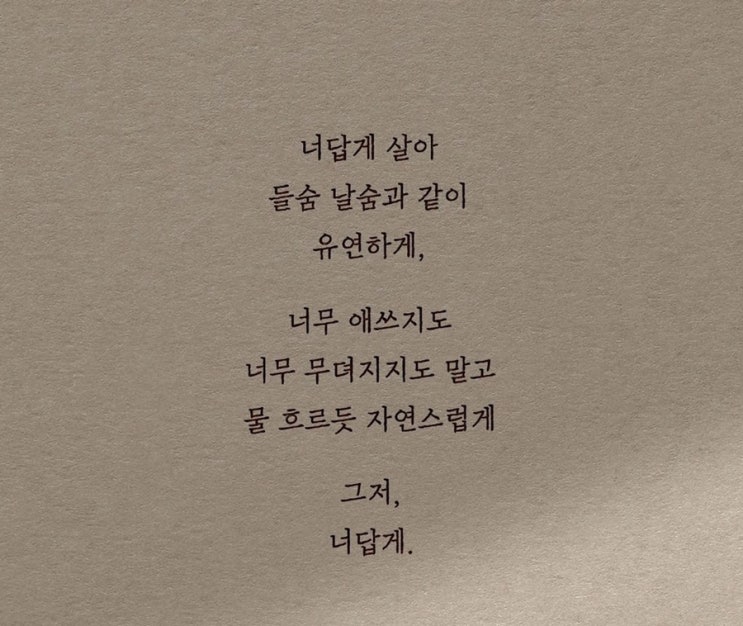 너답게 살아
들숨 날숨과 같이
유연하게,
너무 애쓰지도
너무 무뎌지지도 말고
물 흐르듯 자연스럽게
그저,
너답게.